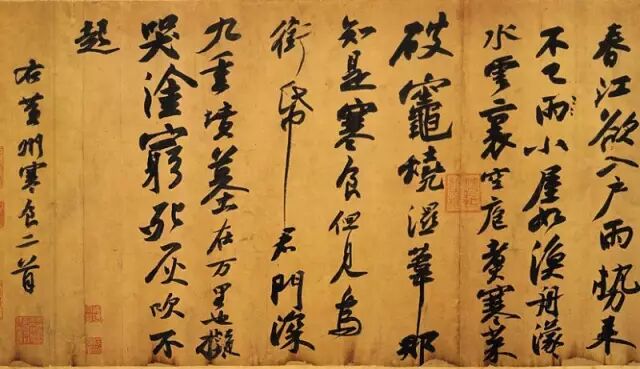 春江欲入户雨勢来
不已雨小屋如漁舟濛
水雲裏空庖煑寒菜
破竈燒濕葦那
知是寒食但見烏
銜帋君門深
九重墳墓在万里也擬
哭塗窮死灰吹不
起
右黄州寒食二首